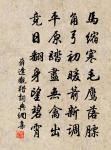 馬縮寒毛鷹落膘
角弓初暖箭新調
平原踏盡無禽出
竟日翻身望碧霄
薛逢觀獵詞典網